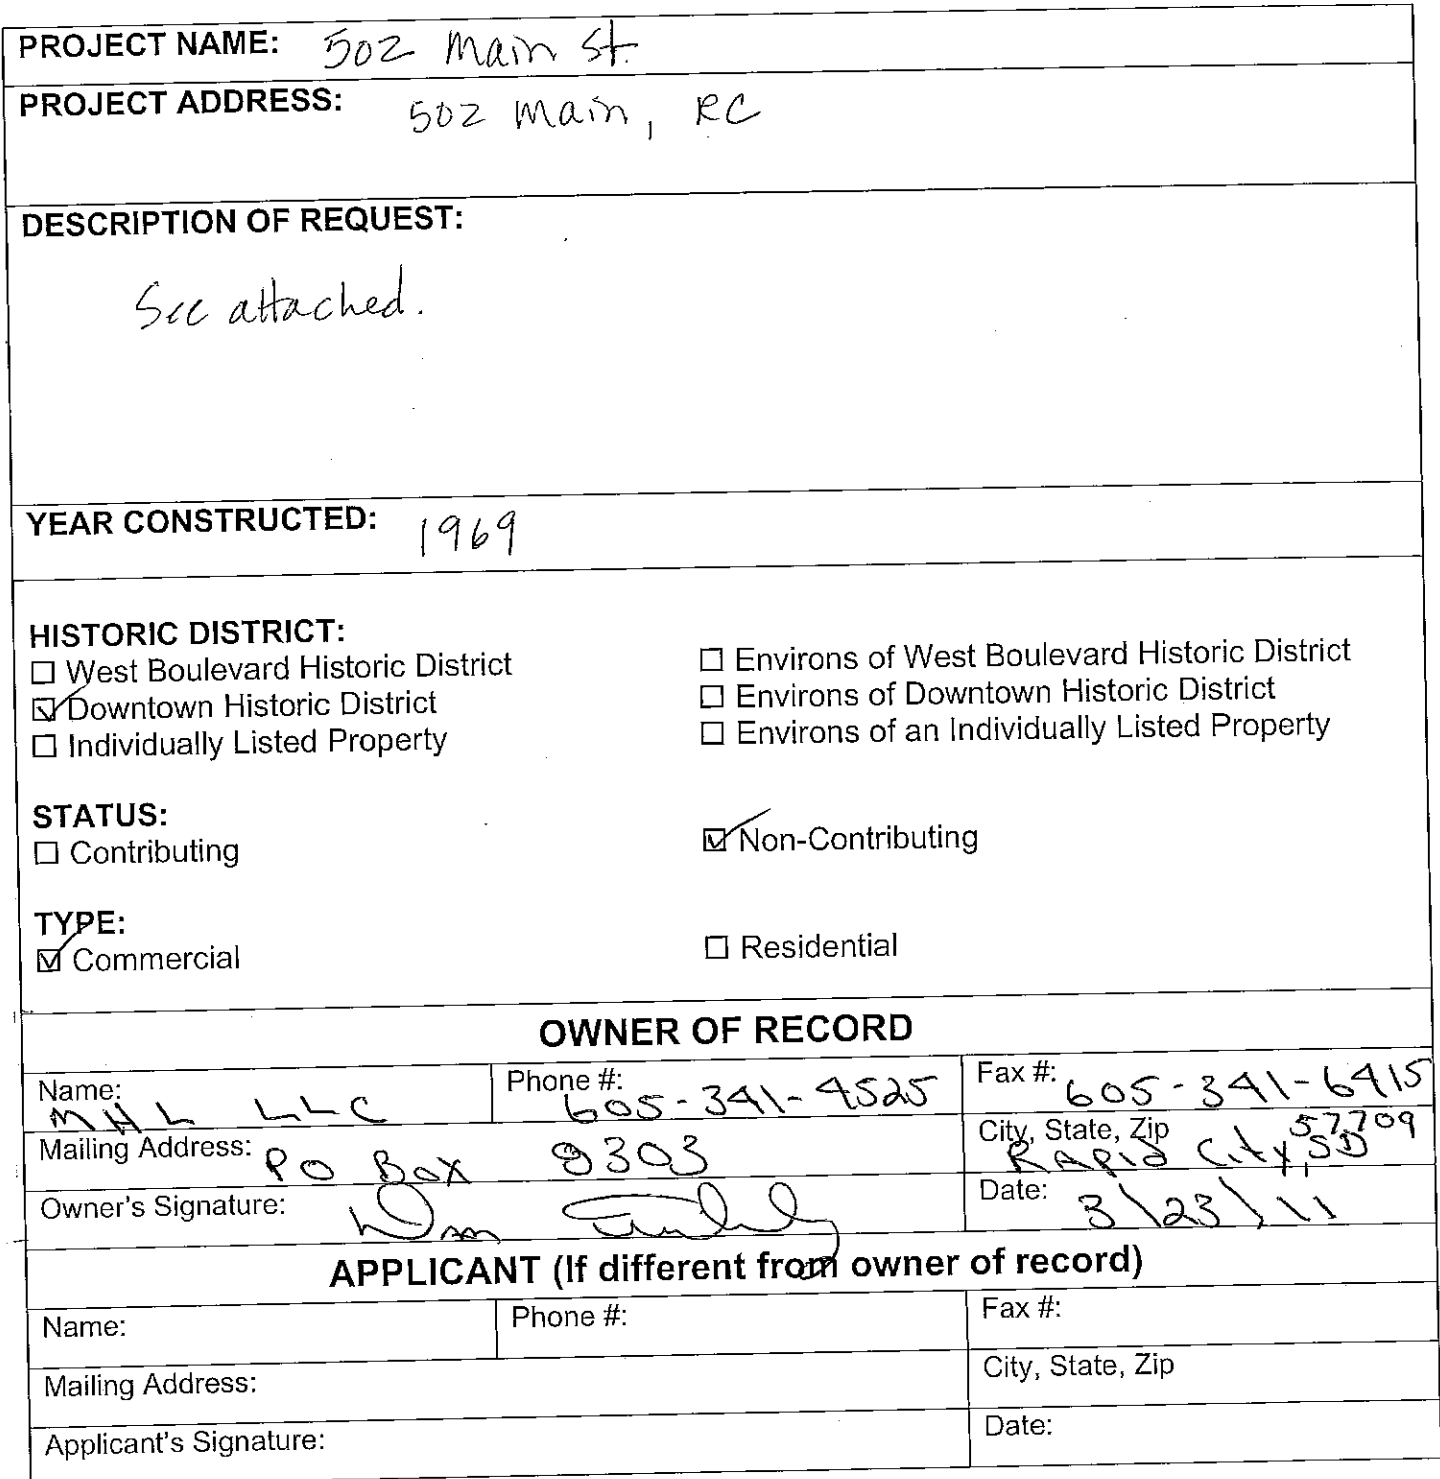 PROJECT NAME: 502 Main St.
PROJECT ADDRESS: 502 Main, RC
DESCRIPTION OF REQUEST:
See attached.
YEAR CONSTRUCTED: 1969
HISTORIC DISTRICT:
☐ West Boulevard Historic District ☐ Environs of West Boulevard Historic District
☑ Downtown Historic District ☐ Environs of Downtown Historic District
☐ Individually Listed Property ☐ Environs of an Individually Listed Property
STATUS:
☐ Contributing ☑ Non-Contributing
TYPE:
☑ Commercial ☐ Residential
OWNER OF RECORD
Name: MHL LLC Phone #: 605-341-4525 Fax #: 605-341-6415
Mailing Address: PO Box 8303 City, State, Zip Rapid City, SD 57709
Owner's Signature: Date: 3\23\11
APPLICANT (If different from owner of record)
Name: Phone #: Fax #:
Mailing Address: City, State, Zip
Applicant's Signature: Date: